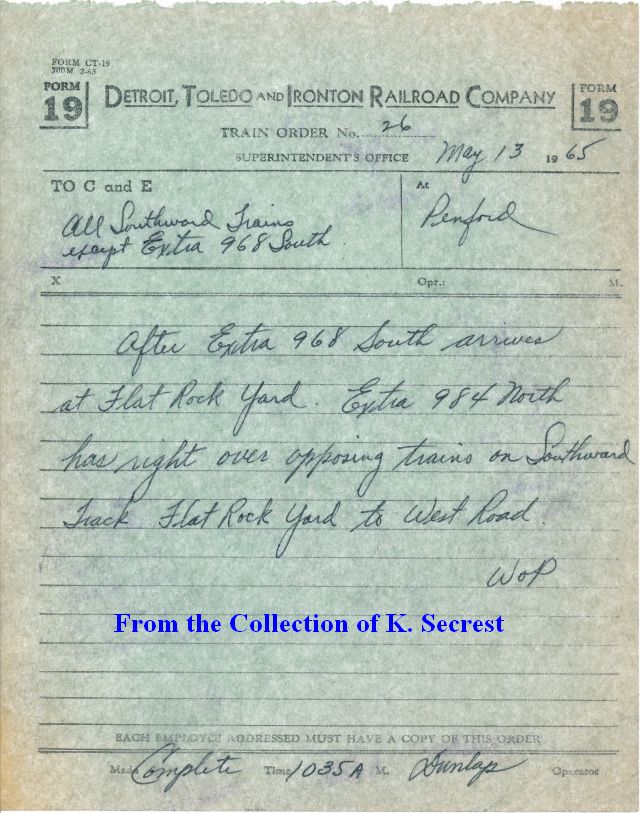 FORM CT-19
300M 2-63
FORM 19 DETROIT, TOLEDO AND IRONTON RAILROAD COMPANY FORM 19
TRAIN ORDER No. 26
SUPERINTENDENT'S OFFICE May 13 1965
TO C and E At
All Southward Trains Penford
except Extra 968 South
X Opr.: M.
After Extra 968 South arrives
at Flat Rock Yard. Extra 984 North
has right over opposing trains on Southward
Track Flat Rock Yard to West Road.
WOP
From the Collection of K. Secrest
EACH EMPLOYEE ADDRESSED MUST HAVE A COPY OF THIS ORDER
Made Complete Time 1035A M. Dunlap Operator